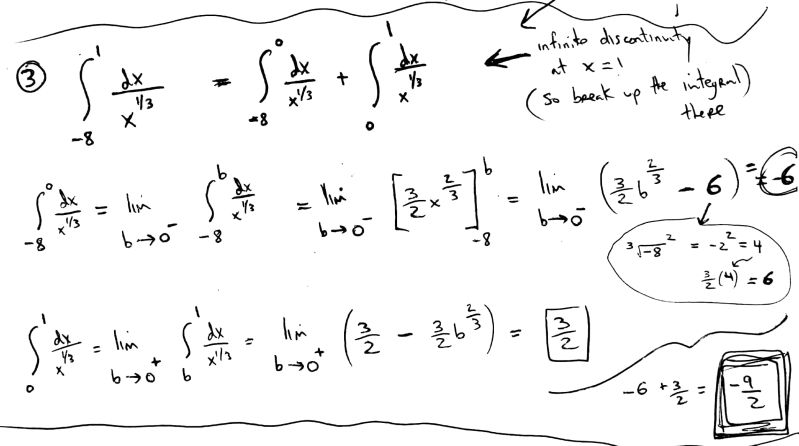 ③ ∫_{-8}^{1} dx/x^{1/3} = ∫_{-8}^{0} dx/x^{1/3} + ∫_{0}^{1} dx/x^{1/3} ← infinite discontinuity
at x=1
(so break up the integral)
there
∫_{-8}^{0} dx/x^{1/3} = lim_{b→0^-} ∫_{-8}^{b} dx/x^{1/3} = lim_{b→0^-} [3/2 x^{2/3}]_{-8}^{b} = lim_{b→0^-} (3/2 b^{2/3} - 6) = -6
³√-8² = -2² = 4
3/2(4) = 6
∫_{0}^{1} dx/x^{1/3} = lim_{b→0^+} ∫_{b}^{1} dx/x^{1/3} = lim_{b→0^+} (3/2 - 3/2 b^{2/3}) = 3/2
-6 + 3/2 = -9/2